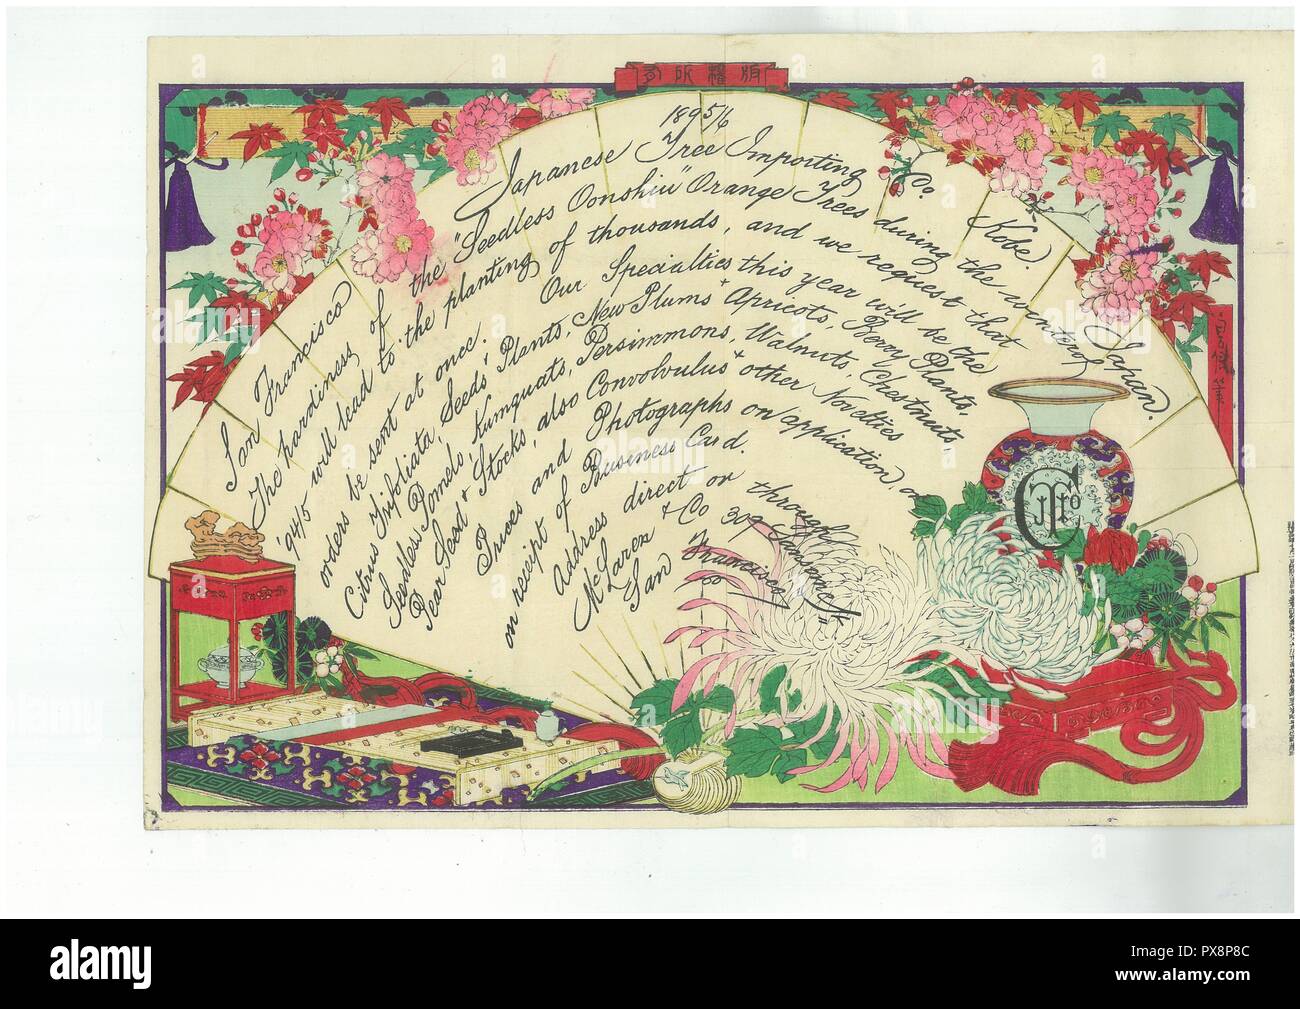 版權所有
1895/6
Japanese Tree Importing Co. Kobe. Japan.
San Francisco
The hardiness of the "Seedless Oonshiu" Orange Trees during the winter of
'94/5 will lead to the planting of thousands, and we request that
orders be sent at once. Our Specialties this year will be the
Citrus Trifoliata, Seeds & Plants, New Plums & Apricots, Berry Plants,
Seedless Pomelo, Kumquats, Persimmons, Walnuts, Chestnuts,
Pear Seed & Stocks, also Convolvulus & other Novelties
Prices and Photographs on application, or
on receipt of Business Card.
Address direct or through
McLaren & Co 309 Sansome St
San Francisco
alamy
PX8P8C
www.alamy.com